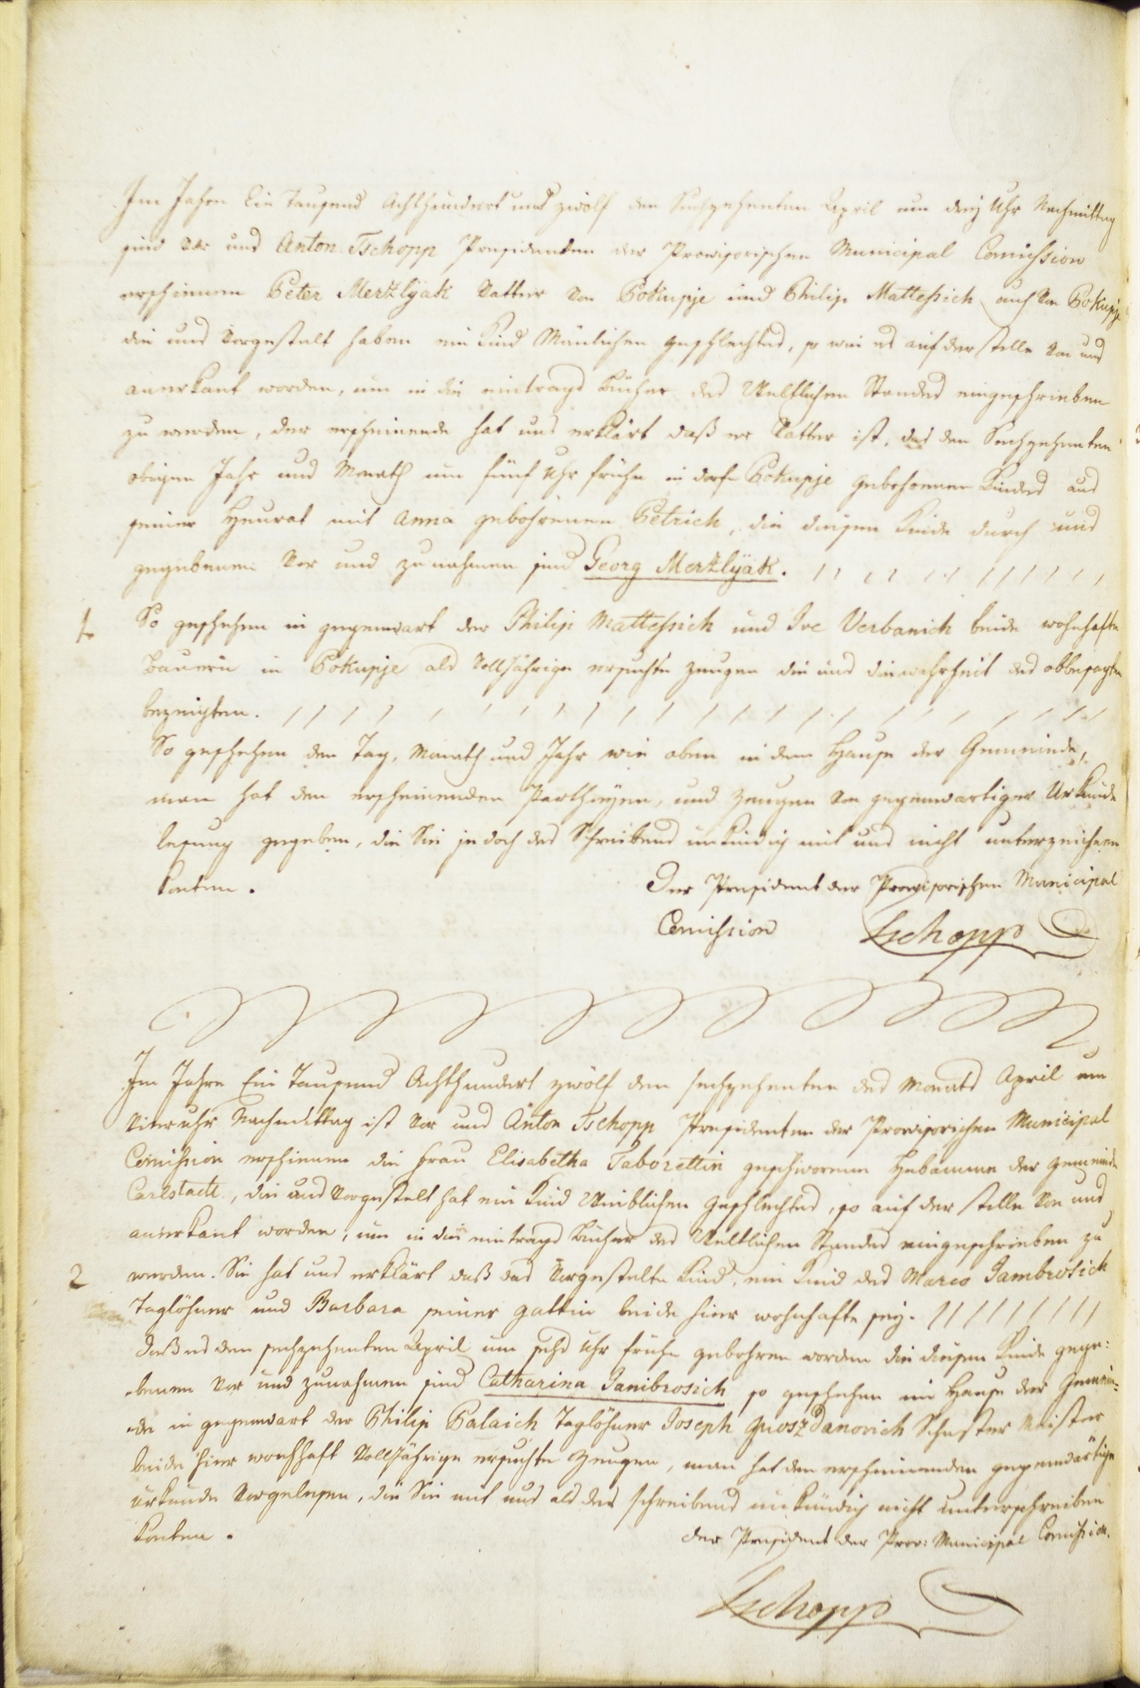 Im Jahre Ein Tausend Achthundert und zwölf den Sechzehenten April um drey Uhr Nachmittag
sind vor uns Anton Tschopp Presidenten der Provisorischen Municipal Comission
erschienen Peter Merzlÿak Vatter von Pokupje und Philip Mattessich auch von Pokupje
die uns vorgestelt haben ein Kind Mänlichen geschlechtes, so wie es auf der stelle von uns
anerkant worden, um in die eintrags Bücher des Weltlichen Standes eingeschrieben
zu werden, der erscheinende hat uns erklärt daß er Vatter ist, des den Sechzehenten
obigen Jahr und Monath um fünf Uhr frühe in dorfe Pokupje gebohrenen Kindes aus
seiner Heurat mit Anna gebohrenen Petrich, die diesem Kinde durch uns
gegebenen Vor und zu nahmen sind Georg Merzlÿak.
1 So geschehen in gegenwart der Philip Mattessich und Ive Verbanich beide wohnhafte
Bauern in Pokupje als Volljährige ersuchte zeugen die uns die wahrheit des obbesagten
bezeugten.
So geschehen den Tag, Monath und Jahr wie oben in dem Hause der Gemeinde,
man hat den erscheinenden Partheyen, und zeugen von gegenwartiger Urkunde
lesung gegeben, die Sie jedoch des Schreibens unkundig mit uns nicht unterzeichnen
konten.
Der President der Provisorischen Municipal
Comission Tschopp
Im Jahre Ein Tausend Achthundert zwölf den sechzehenten des Monats April um
Vier uhr Nachmittag ist vor uns Anton Tschopp Presidenten der Provisorischen Municipal
Comission erschienen die frau Elisabetha Taborettin geschworene Hebamme der gemeinde
Carlstadt, die uns vorgestelt hat ein Kind Weiblichen geschlechtes, so auf der stelle von uns
anerkant worden, um in die eintrags Bücher des Weltlichen Standes eingeschrieben zu
2 werden. Sie hat uns erklärt daß das vorgestelte Kind, ein Kind des Marco Jambrosich
Taglöhner und Barbara seiner gattin beide hier wohnhafte sey.
daß es den sechzehenten April um sechs Uhr frühe gebohren worden die diesem Kinde gege:
benen Vor und zunahmen sind Catharina Janibrosich so geschehen im Hause der Gemein:
de in gegenwart der Philip Palaich Taglöhner Joseph Guoszdanovich Schuster Meister
beide hier wonhhaft Volljährige ersuchte Zeugen, man hat den erscheinenden gegenwärtige
urkunde vorgelesen, die Sie mit uns als des schreibens unkündig nicht unterschreiben
konten.
der President der Prov: Municipal Comission.
Tschopp